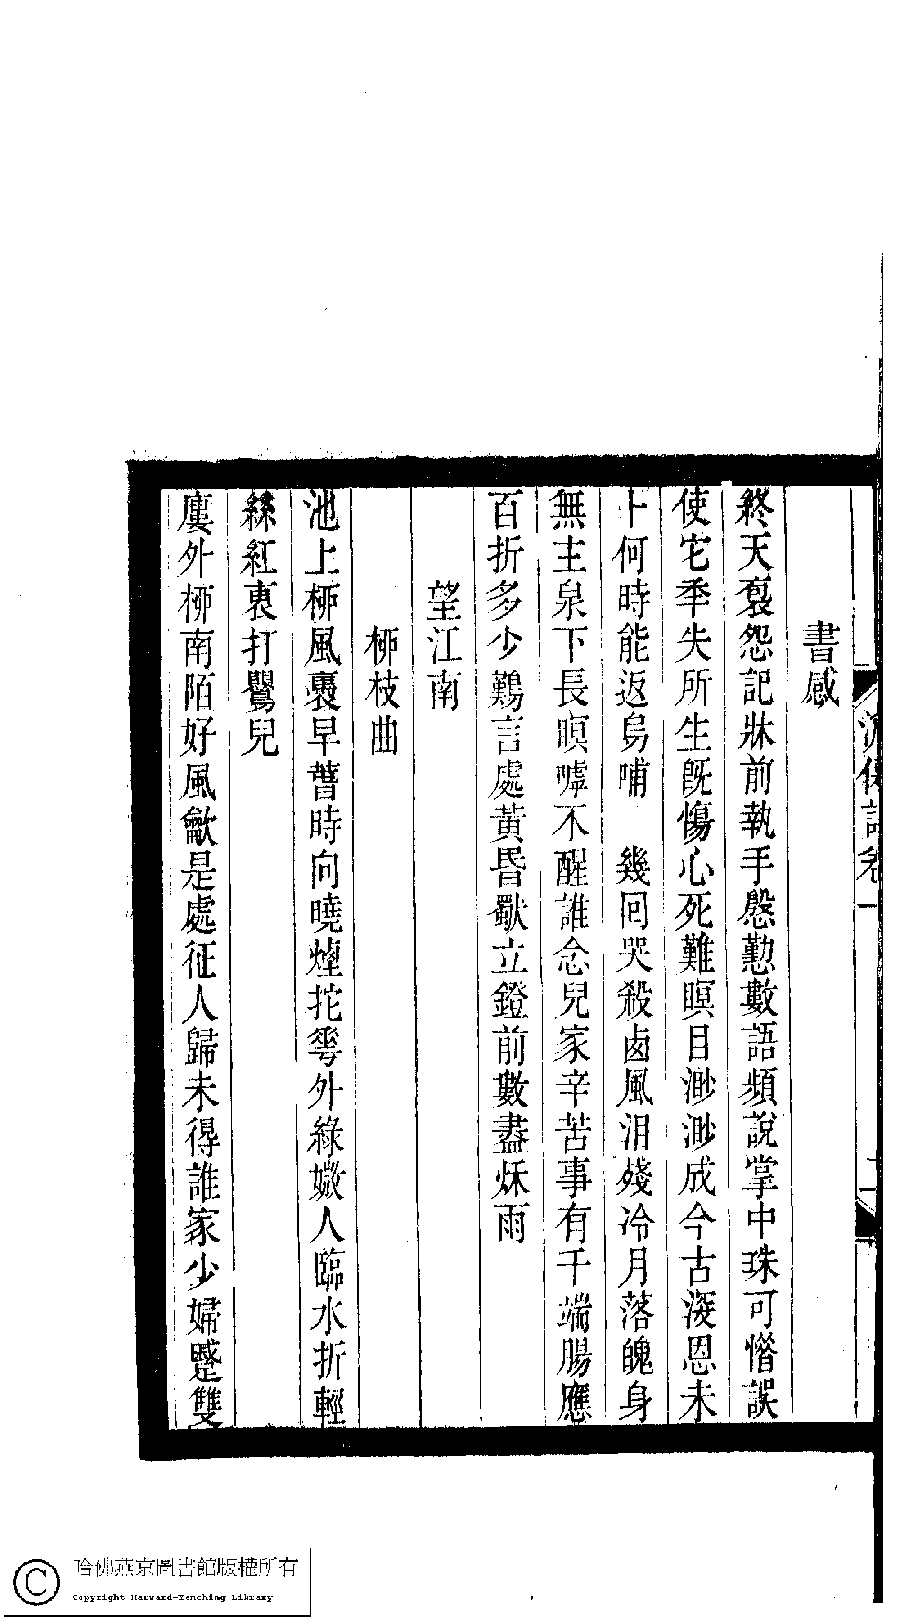 書感
終天裒怨記牀前執手慇懃數語頻說掌中珠可惜誤
使它秊失所生旣傷心死難瞑目渺渺成今古深恩未
卜何時能返烏哺　幾回哭殺鹵風泪殘冷月落魄身
無主泉下長瞑嘑不醒誰念兒家辛苦事有千端腸應
百折多少鷬言處黃昬獨立鐙前數盡秌雨
望江南
桺枝曲
池上桺風裊早瞢時向曉煙拕雩外綠嬍人臨水折輕
絲紅裏打鸎兒
廔外桺南陌好風歈是處征人歸未得誰家少婦蹙雙
哈佛燕京圖書館版權所有
Copyright Harvard-Yenching Library